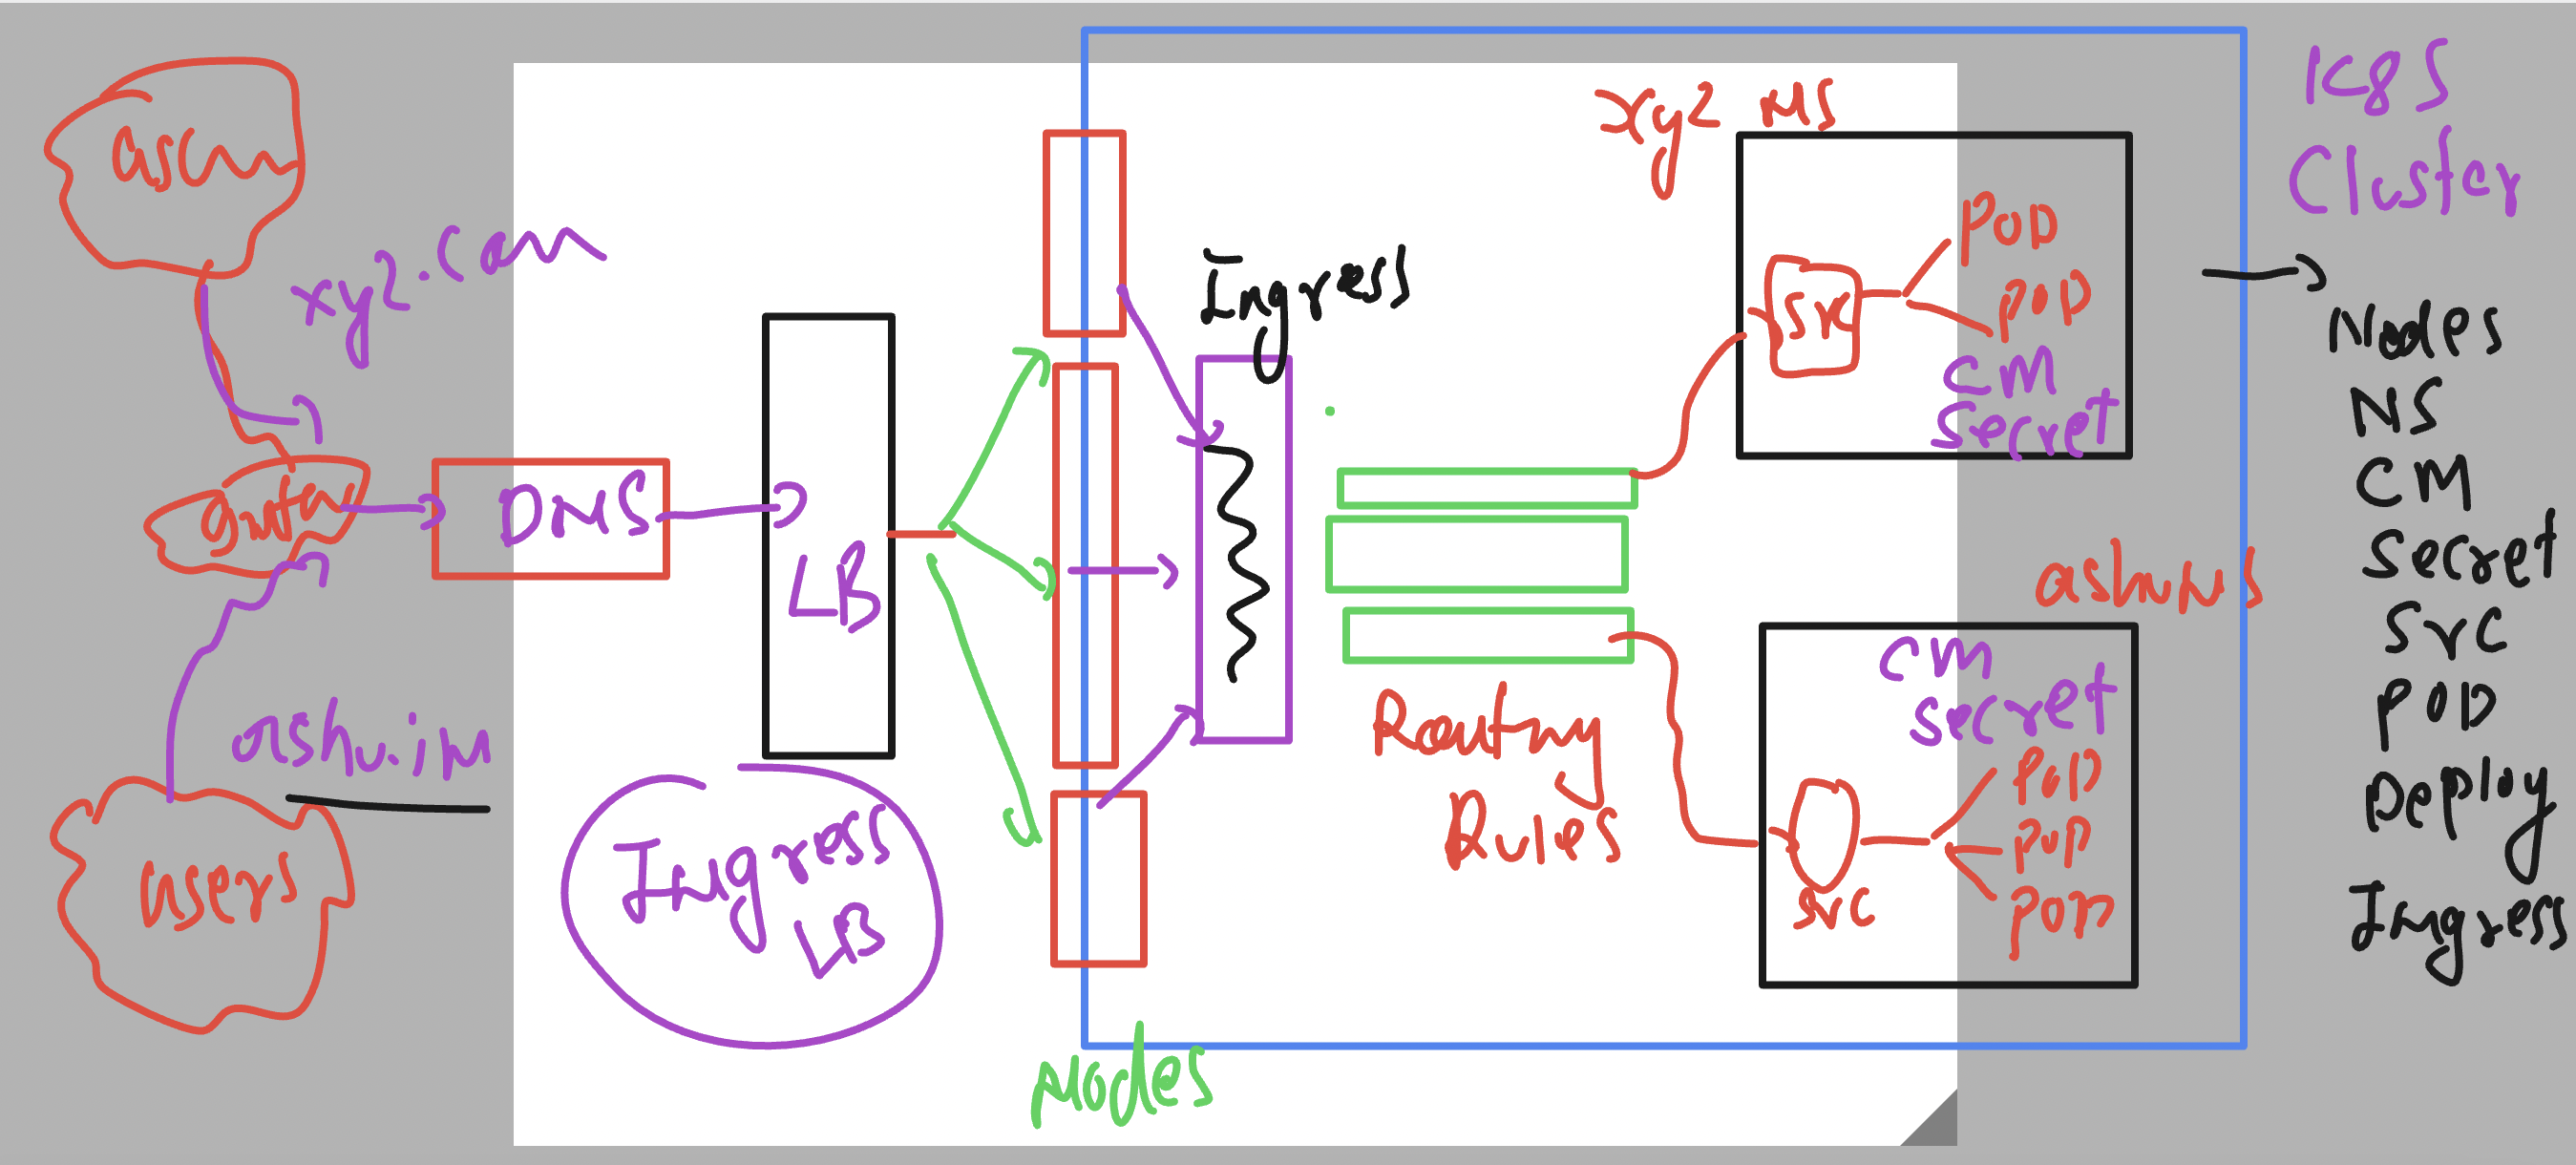 xyz.com
DNS
ashu.in
users
LB
Ingress
LB
Nodes
Ingress
Routing
Rules
xyz NS
svc
POD
POD
CM
Secret
ashuNS
CM
Secret
POD
POD
POD
svc
K8S
Cluster
Nodes
NS
CM
Secret
svc
POD
Deploy
Ingress